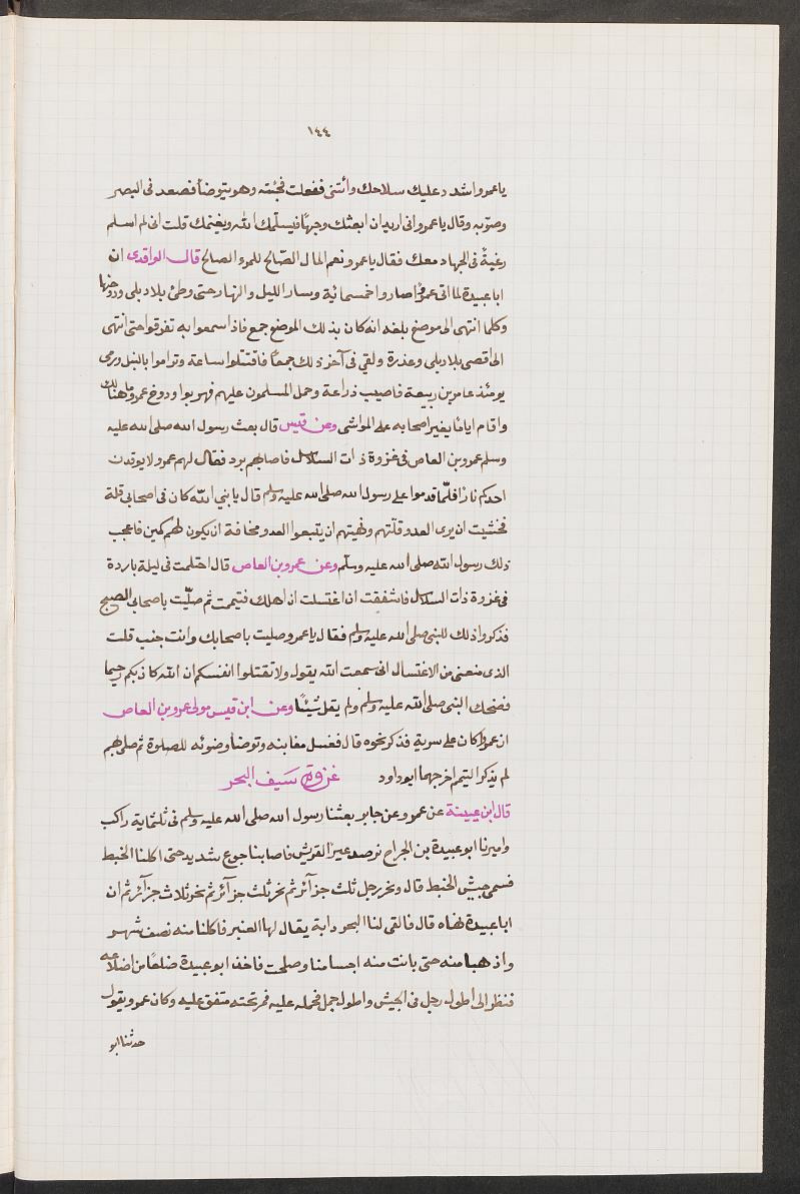 ١٤٤
ياعمرو اشدد عليك سلاحك وأتنى ففعلت فجئته وهو يتوضأ فصعد فى البصر
وصوّبه وقال ياعمرو انى اريد ان ابعثك وجهًا فيسلّمك الله ويغنمك قلت انى لم اسلم
رغبةً فى الجهاد معك فقال ياعمرو نعم المال الصّالح للمرء الصالح قال الواقدى ان
اباعبيدة لما اتى عمرًوا صاروا خمسمائية وسار الليل والنهار حتى وطئ بلاد بلى ودوخها
وكلما انتهى الى موضع بلغه انه كان بذلك الموضع جمع فاذا سمعوا به تفرقوا حتى انتهى
الى اقصى بلاد بلى وعذرة ولقى فى آخر ذلك جمعًا فاقتتلوا ساعة وتراموا بالنبل ورمى
يومئذ عامر بن ربيعة فاصيب ذراعة وحمل المسلمون عليهم فهربوا ودوخ عمرو ما هنالك
واقام اياما يغير اصحابه على المواشى وعن قيس قال بعث رسول الله صلى الله عليه
وسلم عمرو بن العاص فى غزوة ذات السلاسل فاصابهم برد فقال لهم عمرو لايوقدن
احدكم نارًا فلمّا قدموا على رسول الله صلى الله عليه وسلم قال يا نبي الله كان فى اصحابى قلة
فخشيت ان يرى العدو قلّتهم ونهيتهم ان يتبعوا العدو مخافة ان يكون لهم كمين فاعجب
ذلك رسول الله صلى الله عليه وسلّم وعن عمرو بن العاص قال احتلمت فى ليلة باردة
فى غزوة ذات السلاسل فاشفقت ان اغتسلت ان اهلك فتيممت ثم صلّيت باصحابى الصبح
فذكروا ذلك للنبى صلى الله عليه وسلم فقال ياعمرو صليت باصحابك وانت جنب قلت
الذى منعنى من الاغتسال انى سمعت الله يقول ولا تقتلوا انفسكم ان الله كان بكم رحيما
فضحك النبى صلى الله عليه وسلم ولم يقل شيئًا وعن ابن قيس مولى عمرو بن العاص
ان عمرًوا كان على سرية فذكر نحوه قال فغسل مغابنه وتوضأ وضوئه للصلوة ثم صلى بهم
لم يذكر التيمم اخرجهما ابو داود غزوة سيف البحر
قال ابن عيينة عن عمرو عن جابر بعثنا رسول الله صلى الله عليه وسلم فى ثلثماية راكب
واميرنا ابوعبيدة بن الجراح نرصد عيرًا لقريش فاصابنا جوع شديد حتى اكلنا الخبط
فسمى جيش الخبط قال ونحر رجل ثلث جزآئر ثم نحر ثلث جزآئر ثم نحر ثلاث جزآئر ثم ان
اباعبيدة نهاه قال فالقى لنا البحر دابة يقال لها العنبر فاكلنا منه نصف شهر
واذهبا منه حتى بانت منه اجسامنا وصلحت فاخذ ابوعبيدة ضلعًا من اضلاعه
فنظر الى اطول رجل فى الجيش واطول جمل فحمله عليه فمر تحته متفق عليه وكان عمرو يقول
حدثنا ابو